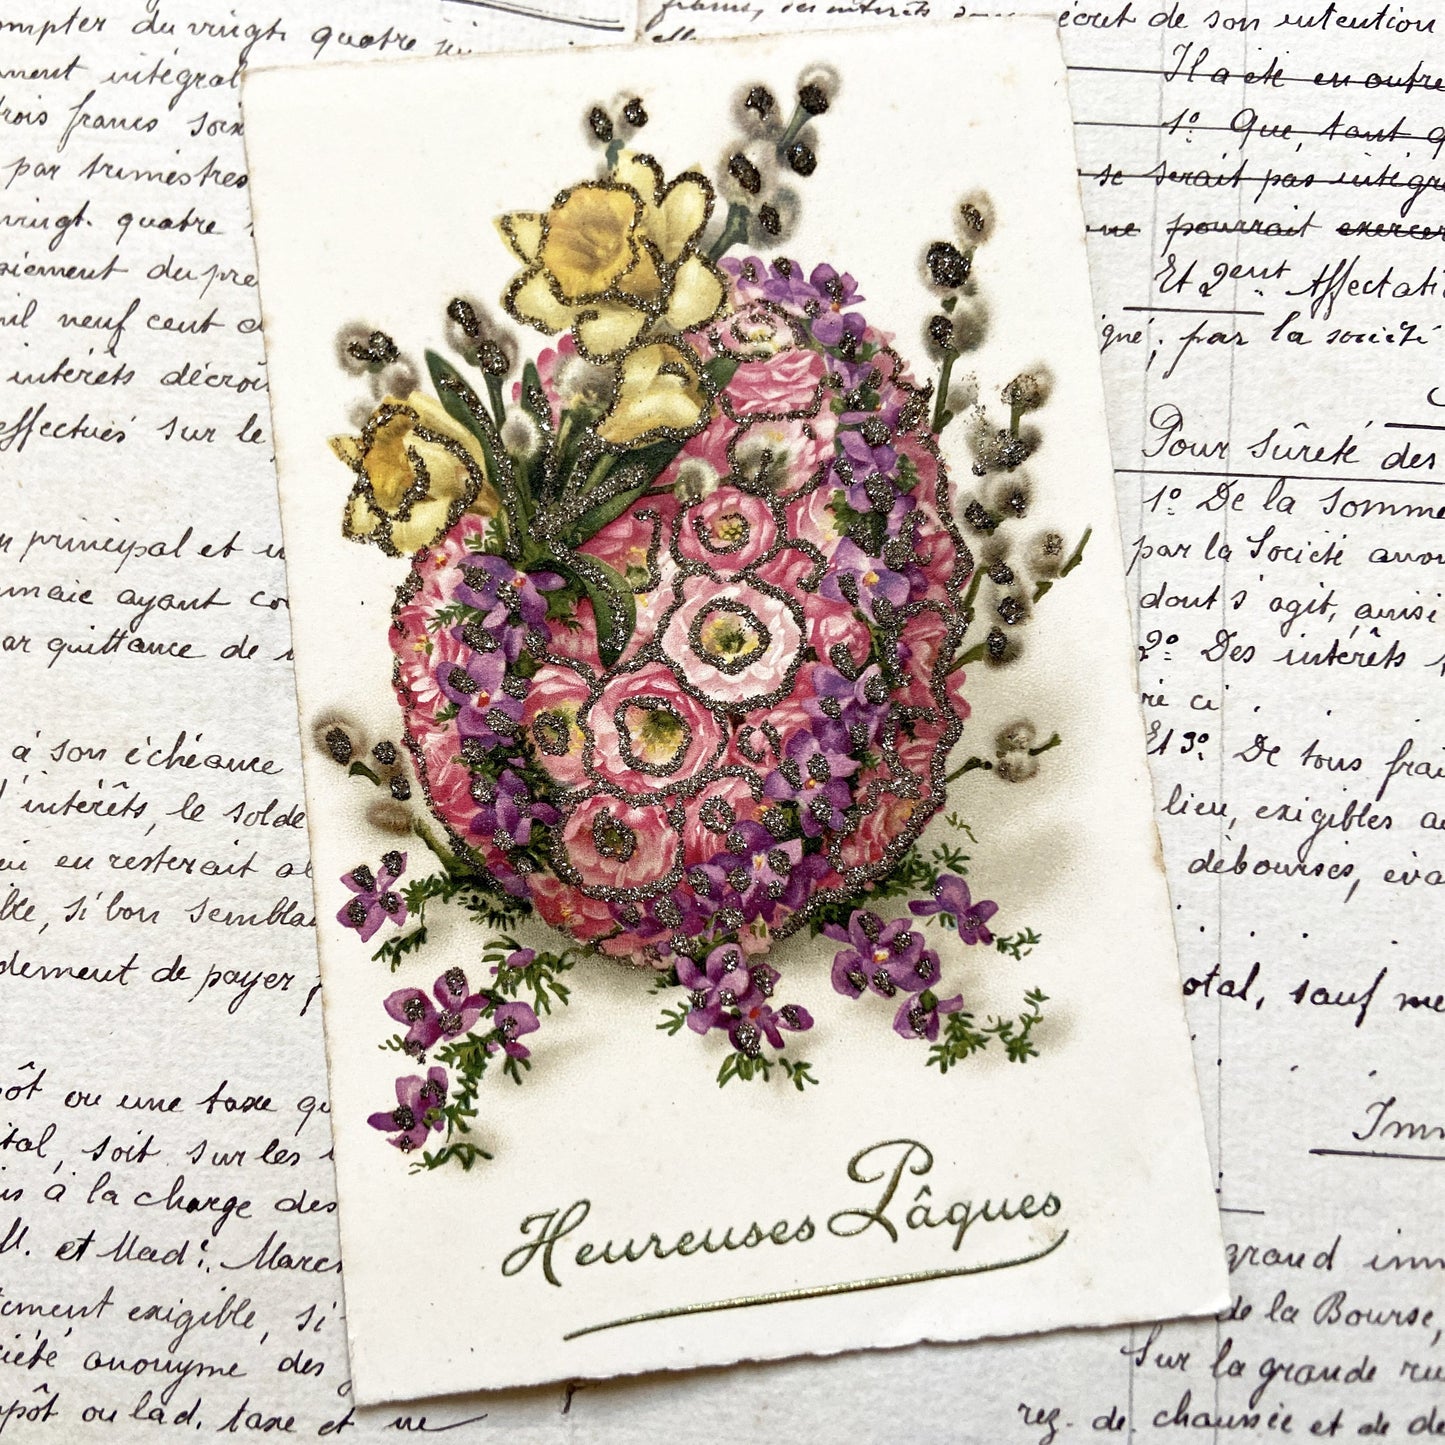 ompter du vingt quatre
ment intégral
rois francs soix
par trimestres
vingt. quatre
aiement du pre
mil neuf cent
intérêts décroi
effectués sur le
principal et
nnaie ayant co
ar quittance de
à son échéance
d'intérêts, le solde
ui en resterait
ble, si bon sembla
dement de payer
pôt ou une taxe qu
ital, soit sur les
is à la charge des
M. et Mad. Marc
tement exigible, si
ciété anonyme des
pôt ou lad. taxe et ne
Heureuses Pâques
écret de son intention
Il a été en outre
1º Que, tant q
se serait pas intégr
ne pourrait exercer
Et 2ent Affectati
igné; par la société
Pour sûreté des
1º De la somme
par la Société anon
dont s'agit, ainsi
2º Des intérêts
ré ci
Et 3º De tous frai
lieu, exigibles au
déboursés, éva
otal, sauf me
Imm
grand imm
de la Bourse,
Sur la grande ru
rez. de. chaussée et de de